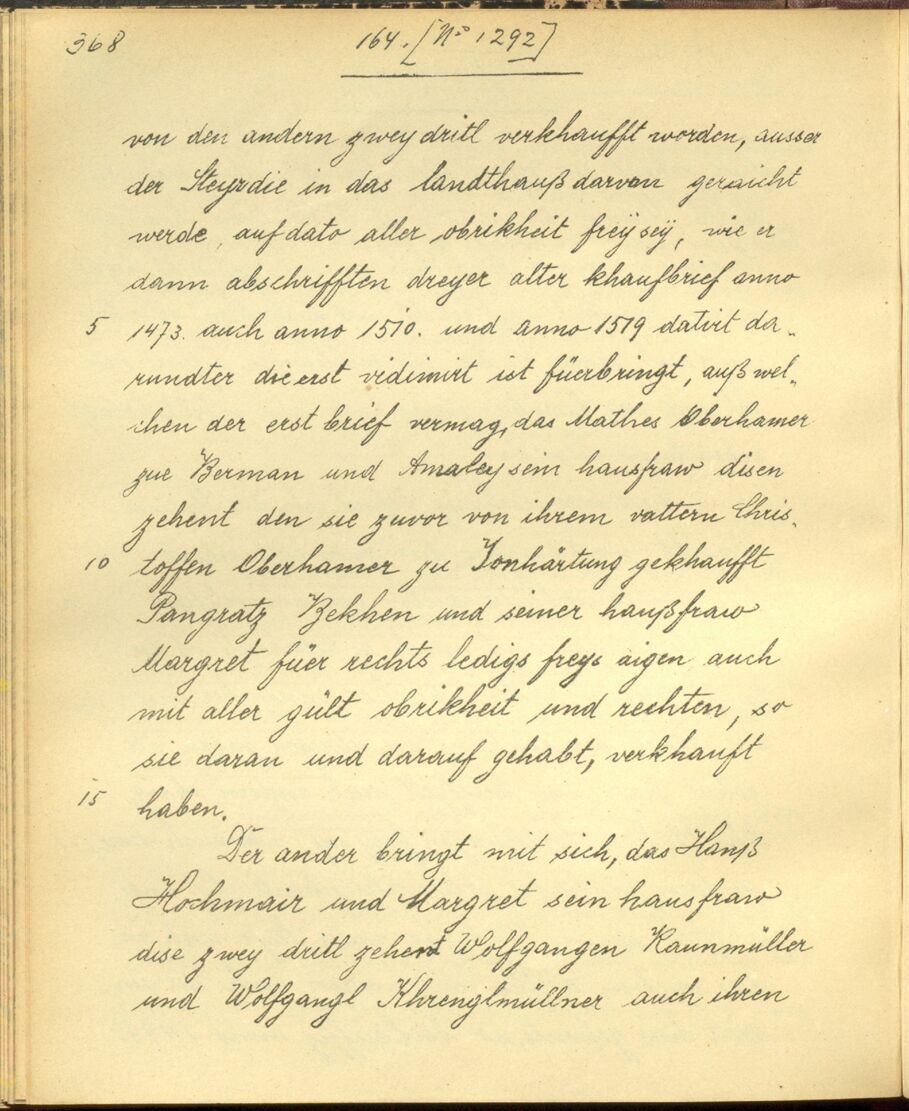 368
164. [No 1292]
von den andern zwey dritl verkhaufft worden, ausser
der Steyr die in das landthauß darvon geraicht
werde, auf dato aller obrikheit freÿ seÿ, wie er
dann abschrifften dreyer alter khaufbrief anno
5 1473. auch anno 1510. und anno 1519 datirt da„
rundter die erst vidimirt ist füerbringt, auß wel„
chen der erst brief vermag, das Mathes Oberhamer
zue Berman und Amaley sein hausfraw disen
zehent den sie zuvor von ihrem vattern Chris„
10 toffen Oberhamer zu Jonhärtung gekhaufft
Pangratz Bekhen und seiner haußfraw
Margret füer rechts ledigs freys aigen auch
mit aller gült obrikheit und rechten, so
sie daran und darauf gehabt, verkhauft
15 haben.
Der ander bringt mit sich, das Hanß
Hochmair und Margret sein hausfraw
dise zwey dritl zehent Wolfgangen Raunmüller
und Wolfgangl Khrenglmüllner auch ihren